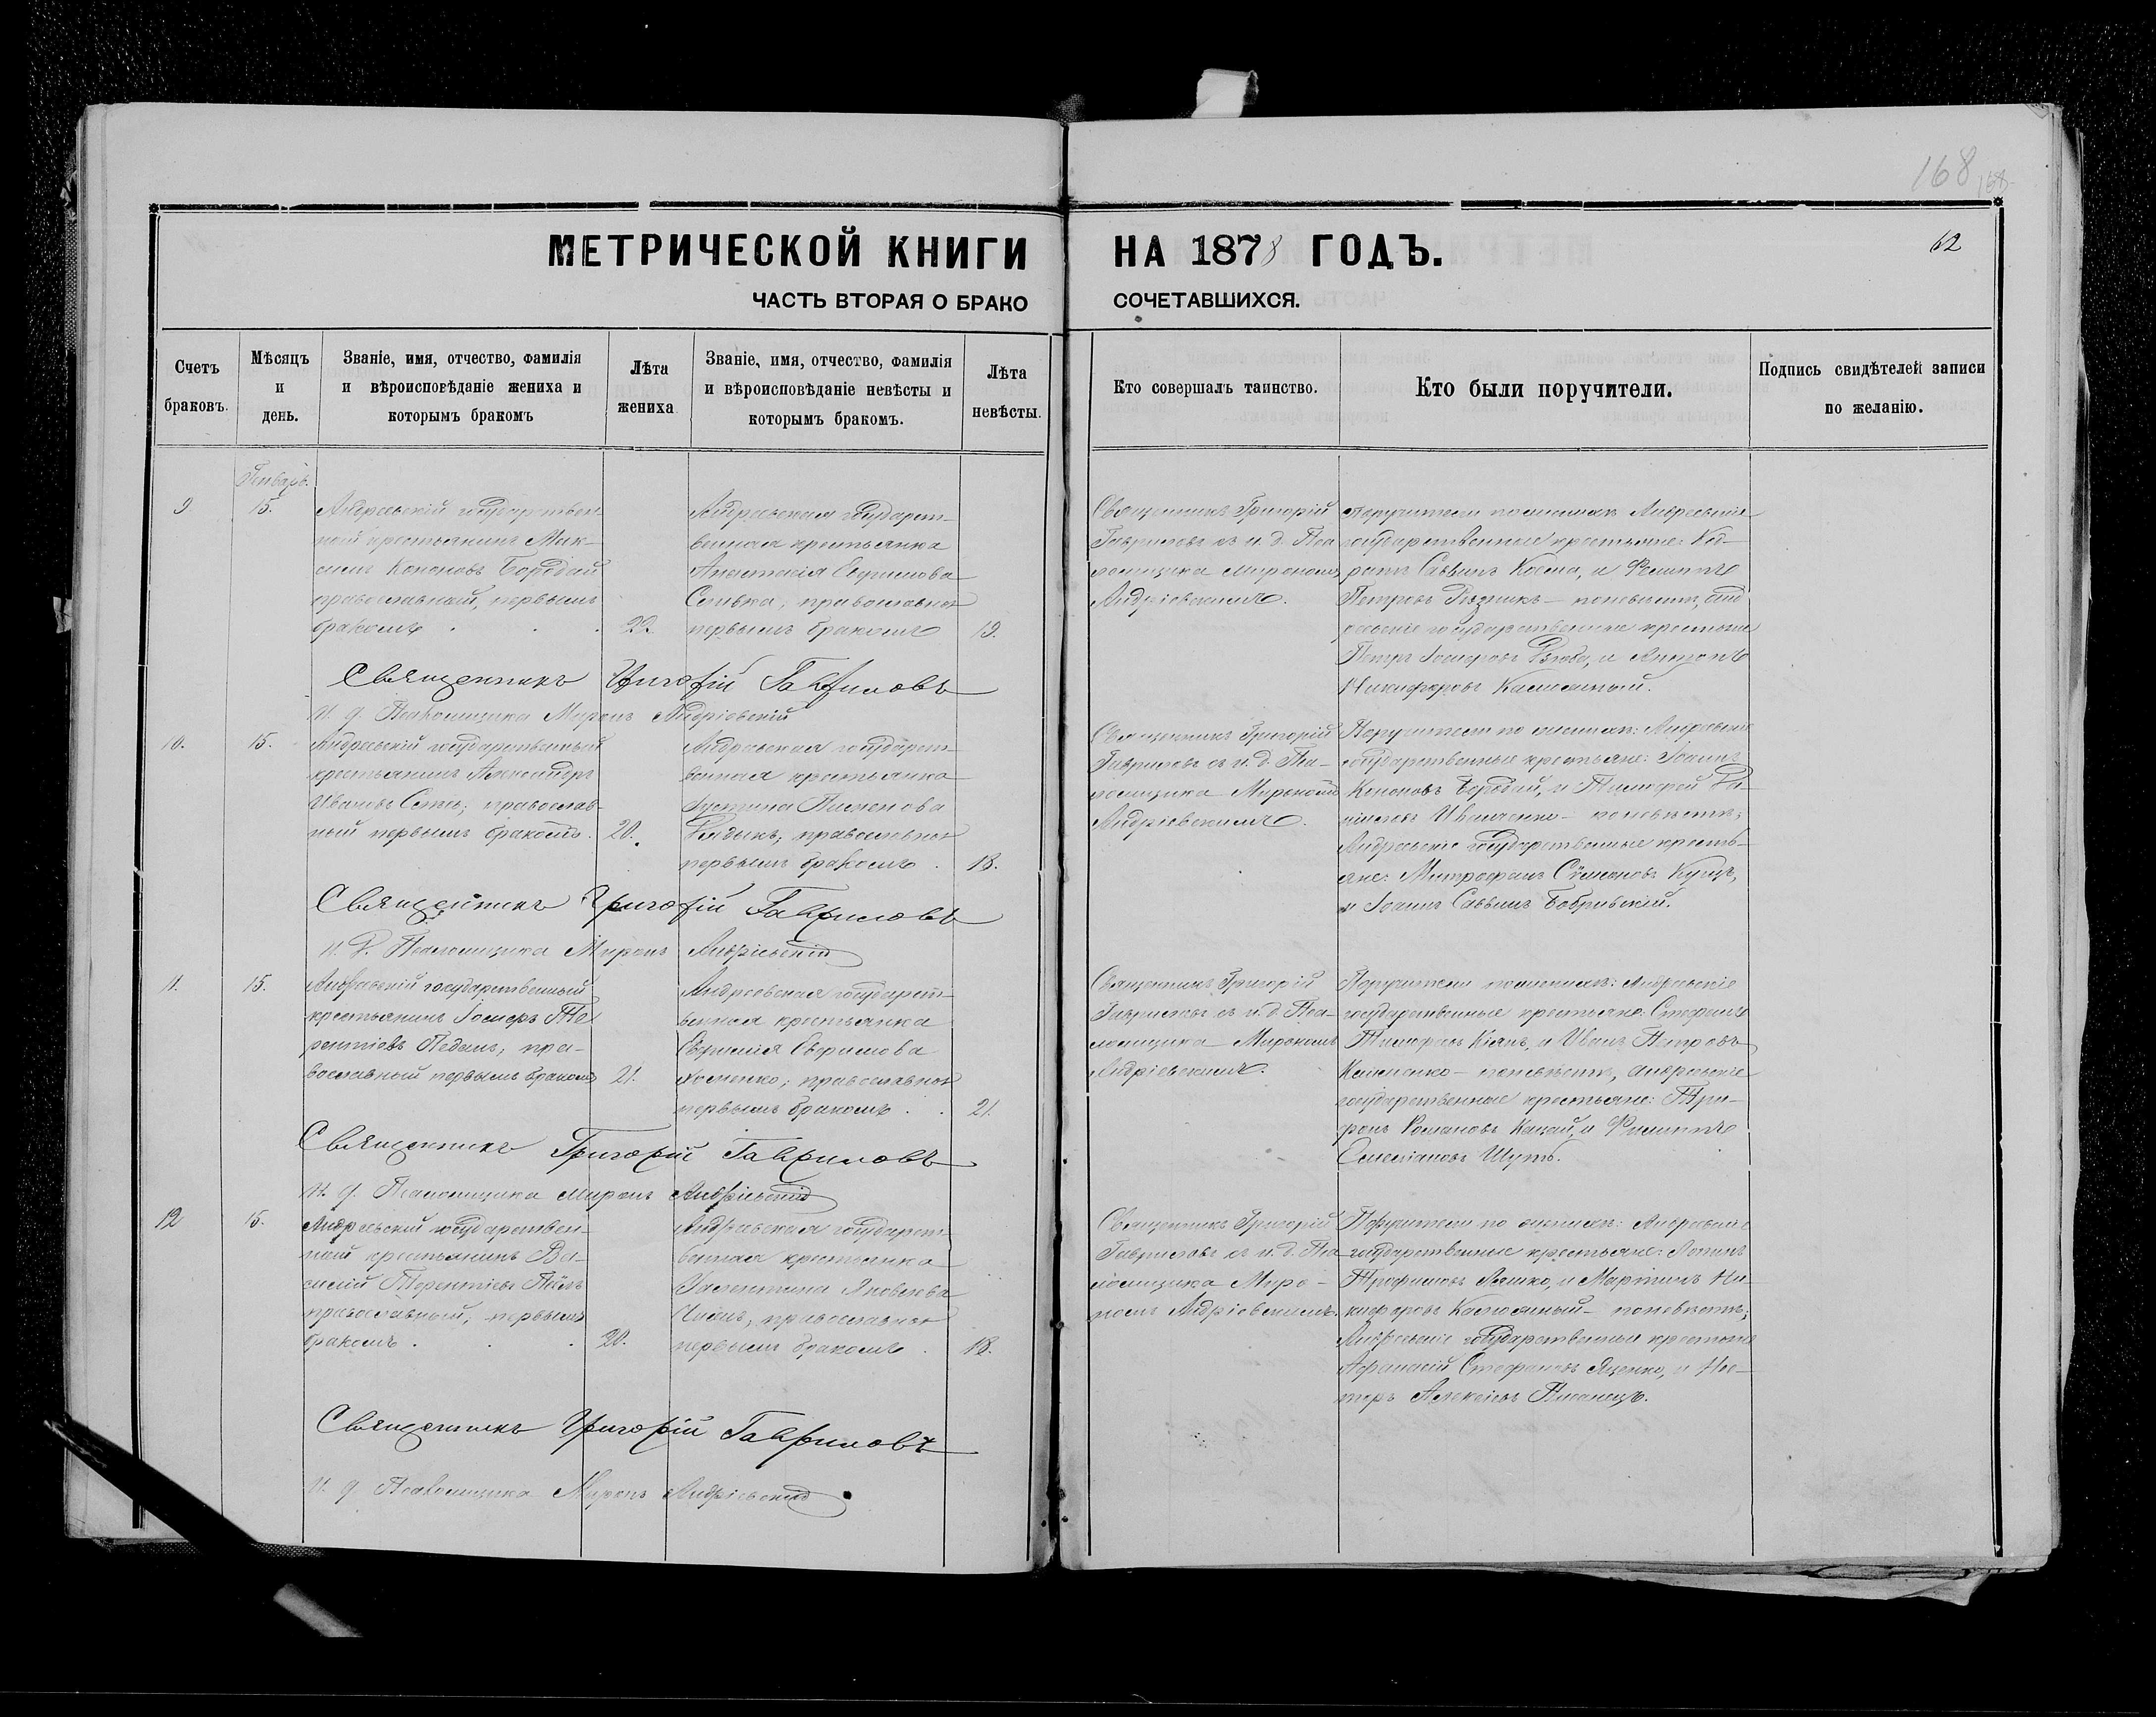 168
МЕТРИЧЕСКОЙ КНИГИ НА 1878 ГОДЪ.
62
ЧАСТЬ ВТОРАЯ О БРАКО СОЧЕТАВШИХСЯ.
Счетъ браковъ.
Мѣсяцъ и день.
Званіе, имя, отчество, фамилія и вѣроисповѣданіе жениха и которымъ бракомъ
Лѣта жениха
Званіе, имя, отчество, фамилія и вѣроисповѣданіе невѣсты и которымъ бракомъ.
Лѣта невѣсты.
Кто совершалъ таинство.
Кто были поручители.
Подпись свидѣтелей записи по желанію.
Генварь.
9
15.
Андреевскій государствен-
ный крестьянинъ Мак-
симъ Кононовъ Бородай
православный, первымъ
бракомъ
22.
Андреевская государст-
венная крестьянка
Анастасія
православная
первымъ бракомъ
19.
Священникъ Григорій
Гавриловъ съ и. д. Пса
ломщика Мирономъ
Андріевскимъ.
Поручители по женихѣ Андреевскіе
государственные крестьяне: Код-
ратъ Саввинъ и Филиппъ
Петровъ Рѣзникъ - по невѣстѣ, Анд
реевскіе государственные крестьяне
Петръ Іосифовъ и Антонъ
Никифоровъ
Священникъ Григорій Гавриловъ
И. д. Псаломщика Миронъ Андріевскій
10.
15.
Андреевскій государственный
крестьянинъ Александръ
Ивановъ православ-
ный первымъ бракомъ.
20.
Андреевская государст-
венная крестьянка
Іустина Пименова
православная
первымъ бракомъ.
18.
Священникъ Григорій
Гавриловъ съ и. д. Пса-
ломщика Мирономъ
Андріевскимъ.
Поручители по женихѣ: Андреевскіе
государственные крестьяне: Іоаннъ
Кононовъ Бородай, и Тимофей Да-
ніиловъ - по невѣстѣ,
Андреевскіе государственные кресть-
яне: Митрофанъ Сѵмеоновъ
и Іоаннъ Саввинъ
Священникъ Григорій Гавриловъ
И. д. Псаломщика Миронъ Андріевскій
11.
15.
Андреевскій государственный
крестьянинъ Іосифъ Те
рентіевъ пра-
вославный первымъ бракомъ
21.
Андреевская государст-
венная крестьянка
Евфимія Ефимова
Хоменко; православная
первымъ бракомъ.
21.
Священникъ Григорій
Гавриловъ съ и. д. Пса-
ломщика Мирономъ
Андріевскимъ.
Поручители по женихѣ: Андреевскіе
государственные крестьяне: Стефанъ
и Иванъ Петровъ
- по невѣстѣ, Андреевскіе
государственные крестьяне: Три-
фонъ Романовъ и Филиппъ
Шутъ.
Священникъ Григорій Гавриловъ
И. д. Псаломщика Миронъ Андріевскій
12
15.
Андреевскій государствен-
ный крестьянинъ Ва-
силій Терентіевъ
православный, первымъ
бракомъ.
20.
Андреевская государст-
венная крестьянка
Валентина Яковлева
православная
первымъ бракомъ.
18.
Священникъ Григорій
Гавриловъ съ и. д. Пса
ломщика Миро-
номъ Андріевскимъ.
Поручители по женихѣ: Андреевскіе
государственные крестьяне: Логинъ
Трофимовъ Ляшко, и Мартинъ Ни-
кифоровъ - по невѣстѣ;
Андреевскіе государственные крестьяне
Афанасій Стефановъ Яценко, и Нес-
торъ Алексѣевъ
Священникъ Григорій Гавриловъ
И. д. Псаломщика Миронъ Андріевскій